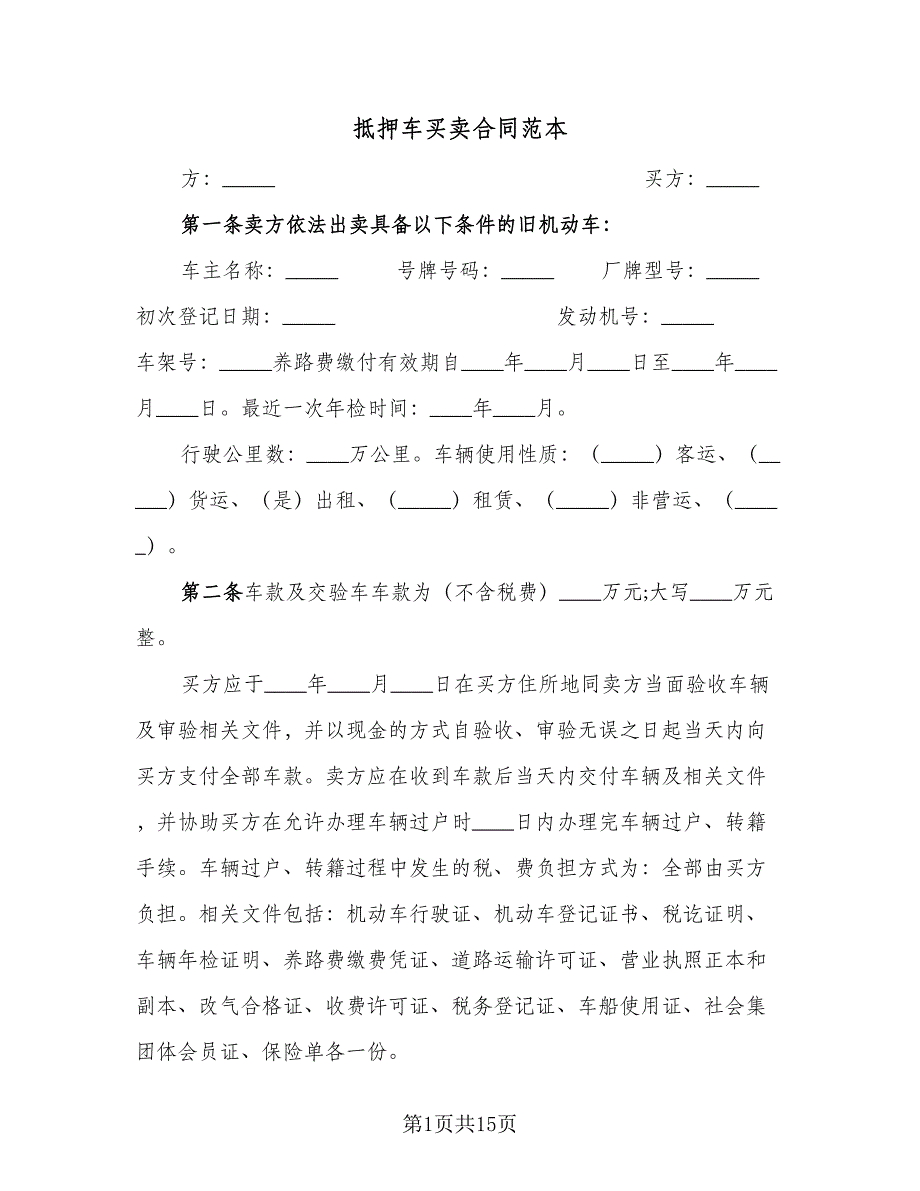 抵押车买卖合同范本
方：_____ 买方：_____
第一条卖方依法出卖具备以下条件的旧机动车：
车主名称：_____ 号牌号码：_____ 厂牌型号：_____
初次登记日期：_____ 发动机号：_____
车架号：_____养路费缴付有效期自____年____月____日至____年____
月____日。最近一次年检时间：____年____月。
行驶公里数：____万公里。车辆使用性质：（_____）客运、（__
___）货运、（是）出租、（_____）租赁、（_____）非营运、（____
_）。
第二条车款及交验车车款为（不含税费）____万元;大写____万元
整。
买方应于____年____月____日在买方住所地同卖方当面验收车辆
及审验相关文件，并以现金的方式自验收、审验无误之日起当天内向
买方支付全部车款。卖方应在收到车款后当天内交付车辆及相关文件
，并协助买方在允许办理车辆过户时____日内办理完车辆过户、转籍
手续。车辆过户、转籍过程中发生的税、费负担方式为：全部由买方
负担。相关文件包括：机动车行驶证、机动车登记证书、税讫证明、
车辆年检证明、养路费缴费凭证、道路运输许可证、营业执照正本和
副本、改气合格证、收费许可证、税务登记证、车船使用证、社会集
团体会员证、保险单各一份。
第1页共15页